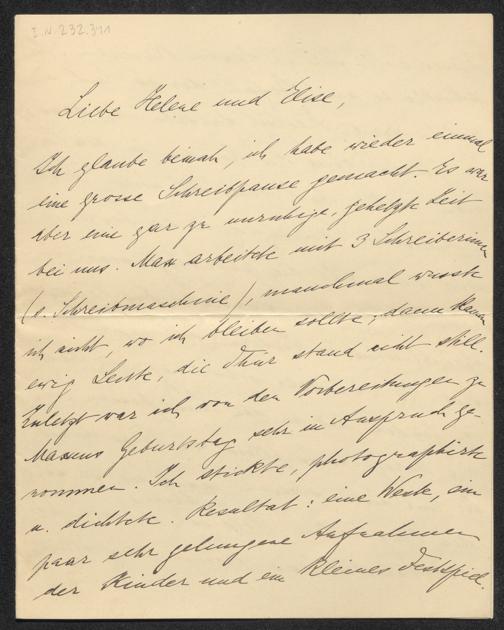 I.N. 232.311
Liebe Helene und Elise,
Ich glaube beinah, ich habe wieder einmal
eine grosse Schreibpause gemacht. Es war
aber eine gar zu unruhige, gehetzte Zeit
bei uns. Max arbeitete mit 3 Schreiberinnen
(s. Schreibmaschine), manchmal wusste
ich nicht, wo ich bleiben sollte; dann kamen
ewig Leute, die Thür stand nicht still.
Zuletzt war ich von den Vorbereitungen zu
Maxens Geburtstag sehr in Anspruch ge-
nommen. Ich stickte, photographirte
u. dichtete. Resultat: eine Weste, ein
paar sehr gelungene Aufnahmen
der Kinder und ein kleines Festspiel.